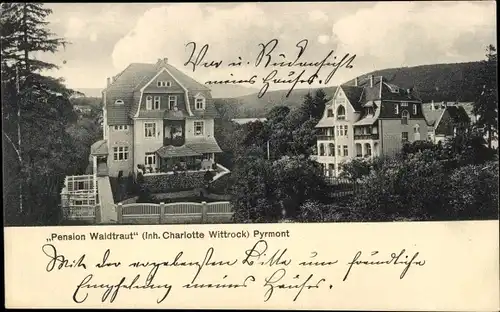 Vor u. Rückansicht
meines Hauses.
„Pension Waldtraut“ (Inh. Charlotte Wittrock) Pyrmont
Mit der ergebensten Bitte um freundliche
Empfehlung meines Hauses.